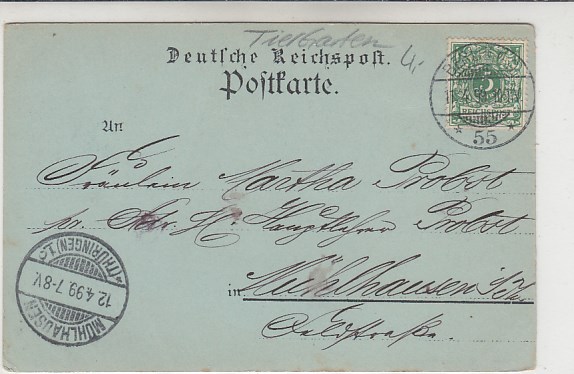 Tiergarten 4,-
Deutsche Reichspost.
Postkarte.
5
55
An
Fräulein Martha Probst
Adr. H. Hauptlehrer Probst
in Mühlhausen i/Thür.
Feldstraße.
MÜHLHAUSEN (THÜRINGEN) 1.c
12.4.99.7-8V.